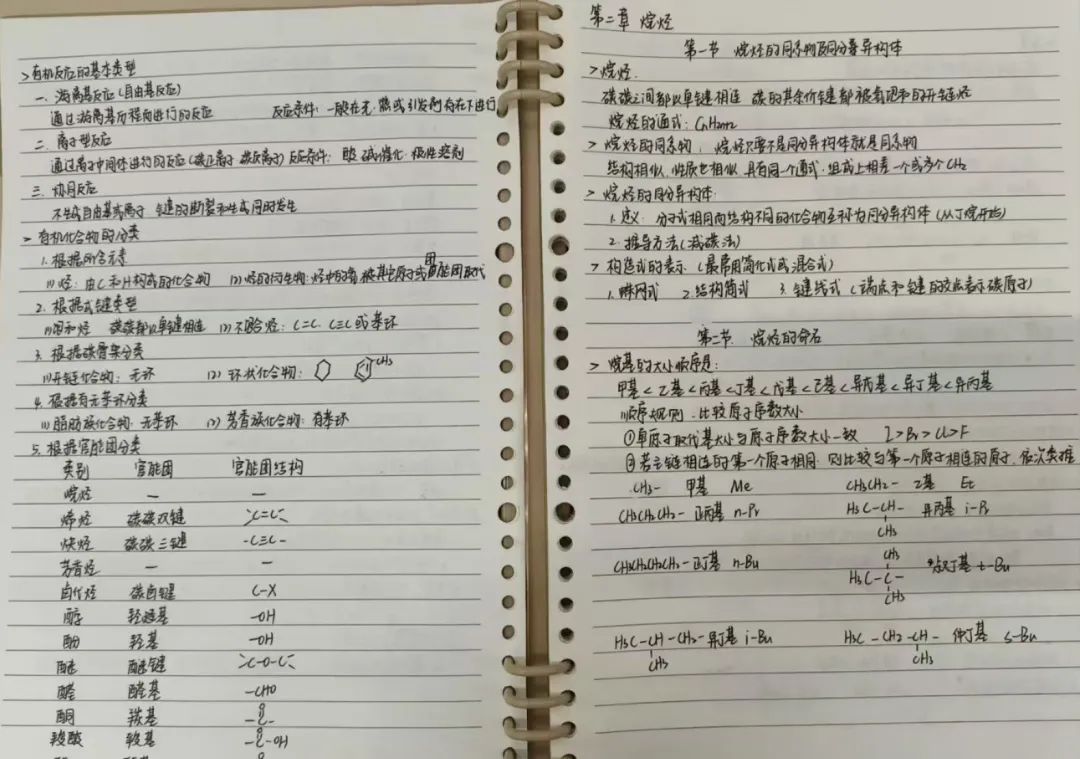 >有机反应的基本类型
一、游离基反应(自由基反应)
通过游离基历程而进行的反应 反应条件:一般在光.热或引发剂存在下进行
二. 离子型反应
通过离子中间体进行的反应(碳正离子 碳负离子) 反应条件: 酸 碱催化 极性溶剂
三. 协同反应
不生成自由基或离子 键的断裂和生成同时发生
> 有机化合物的分类
1. 根据所含元素
(1) 烃: 由C和H构成的化合物 (2) 烃的衍生物: 烃中的氢被其它原子或原子团取代
2. 根据成键类型
(1)饱和烃 碳碳都以单键相连 (2) 不饱和烃: C=C. C≡C 或苯环
3. 根据碳骨架分类
(1)开链化合物: 无环 (2) 环状化合物: CH3
4. 根据有无苯环分类
(1) 脂肪族化合物 无苯环 (2) 芳香族化合物: 有苯环
5. 根据官能团分类
类别 官能团 官能团结构
烷烃 — —
烯烃 碳碳双键 >C=C<
炔烃 碳碳三键 -C≡C-
芳香烃 — —
卤代烃 碳卤键 C-X
醇 羟基 -OH
酚 羟基 -OH
醚 醚键 >C-O-C<
醛 醛基 -CHO
酮 羰基 O -C-
羧酸 羧基 O -C-OH
第二章 烷烃
第一节 烷烃的同系物及同分异构体
> 烷烃
碳碳之间都以单键相连 碳的其余价键都被氢饱和的开链烃
烷烃的通式: CnH2n+2
> 烷烃的同系物: 烷烃只要不是同分异构体就是同系物
结构相似,性质也相似 具有同一个通式.组成上相差一个或多个CH2
> 烷烃的同分异构体:
1. 定义: 分子式相同而结构不同的化合物互称为同分异构体 (从丁烷开始)
2. 推导方法(减碳法)
> 构造式的表示 (最常用简化式或混合式)
1. 蛛网式 2. 结构简式 3. 键线式 (端点和键的交点表示碳原子)
第二节. 烷烃的命名
> 烷基的大小顺序是:
甲基<乙基<丙基<丁基<戊基<己基<异戊基<异丁基<异丙基
(1)顺序规则. 比较原子序数大小
①单原子取代基大小与原子序数大小一致 I>Br>Cl>F
②若主链相连的第一个原子相同. 则比较与第一个原子相连的原子. 依次类推
CH3- 甲基 Me CH3CH2- 乙基 Et
CH3CH2CH2- 正丙基 n-Pr H3C-CH- 异丙基 i-Pr
CH3
CH3
CH3CH2CH2CH2-正丁基 n-Bu H3C-C- 叔丁基 t-Bu
CH3
H3C-CH-CH2-异丁基 i-Bu H3C-CH2-CH- 仲丁基 s-Bu
CH3 CH3